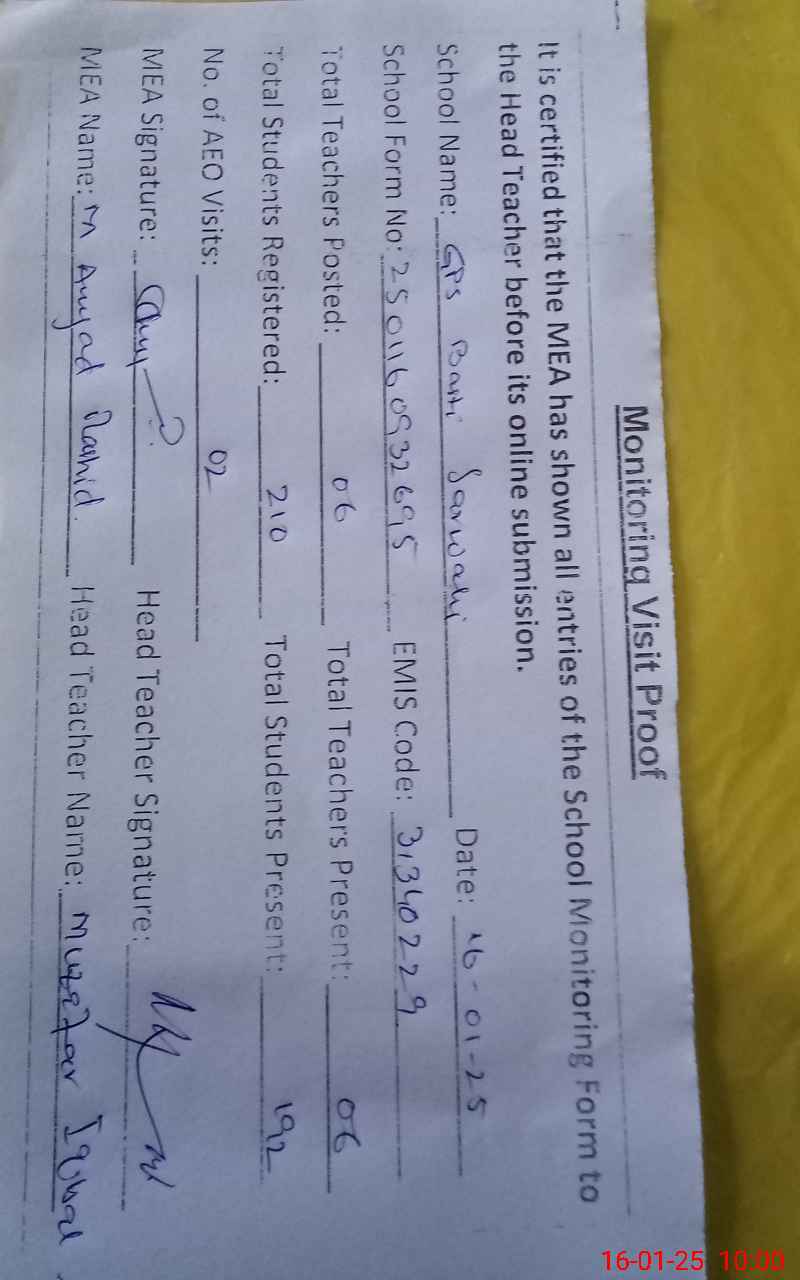 Monitoring Visit Proof
It is certified that the MEA has shown all entries of the School Monitoring Form to
the Head Teacher before its online submission.
School Name: GPS Basti Sarwahi Date: 16-01-25
School Form No: 2501160932695 EMIS Code: 31340229
Total Teachers Posted: 06 Total Teachers Present: 06
Total Students Registered: 210 Total Students Present: 192
No. of AEO Visits: 02
MEA Signature: Head Teacher Signature:
MEA Name: M Amjad Rashid. Head Teacher Name: Muzaffar Iqbal
16-01-25 10:00